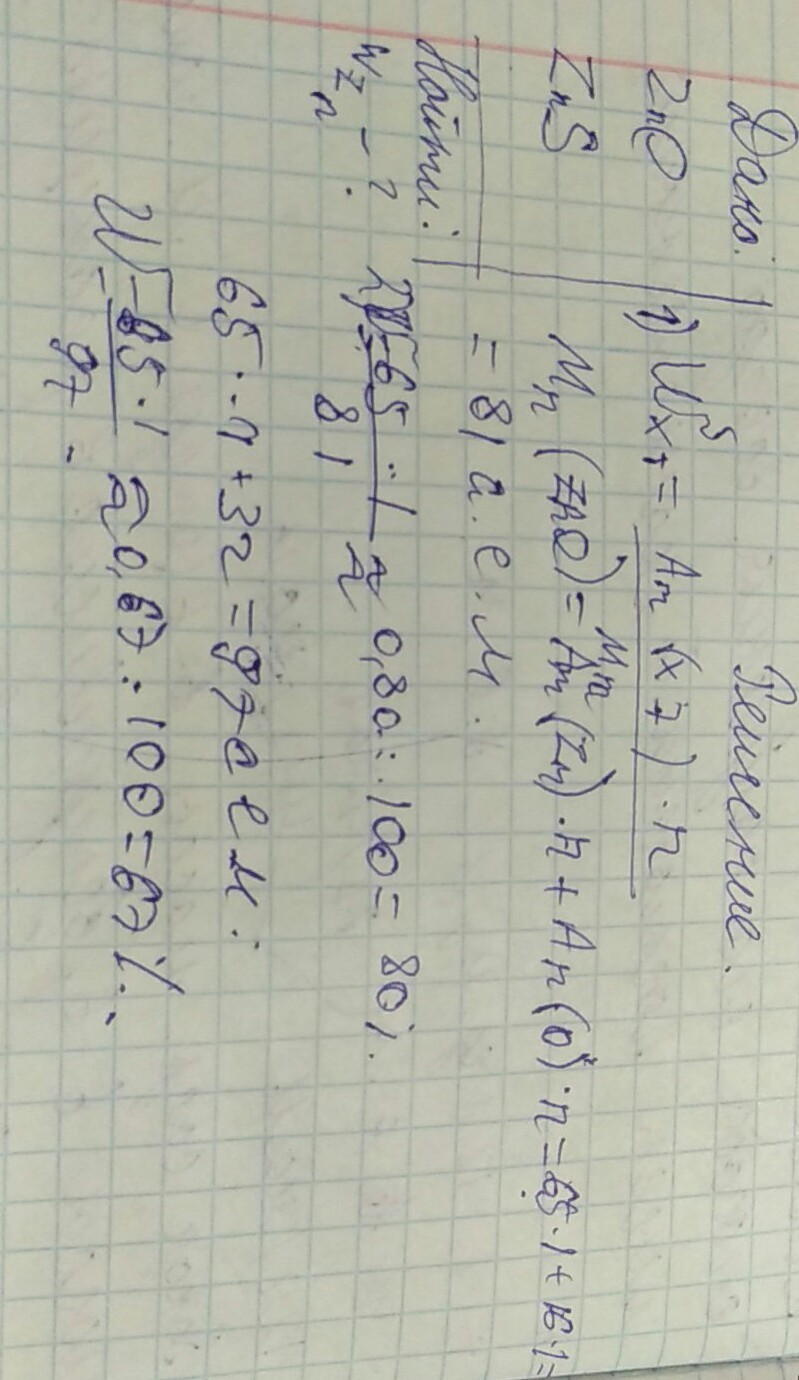 Дано:
ZnO
ZnS
Найти:
WZn - ?
Решение.
1) Wхэ = Ar(хэ)·n / Mr
Mr(ZnO) = Ar(Zn)·n + Ar(O)·n = 65·1 + 16·1 =
= 81 а.е.м.
W = 65·1 / 81 ≈ 0,80·100 = 80%.
65·1 + 32 = 97 а е м.
W = 65·1 / 97 ≈ 0,67·100 = 67%.